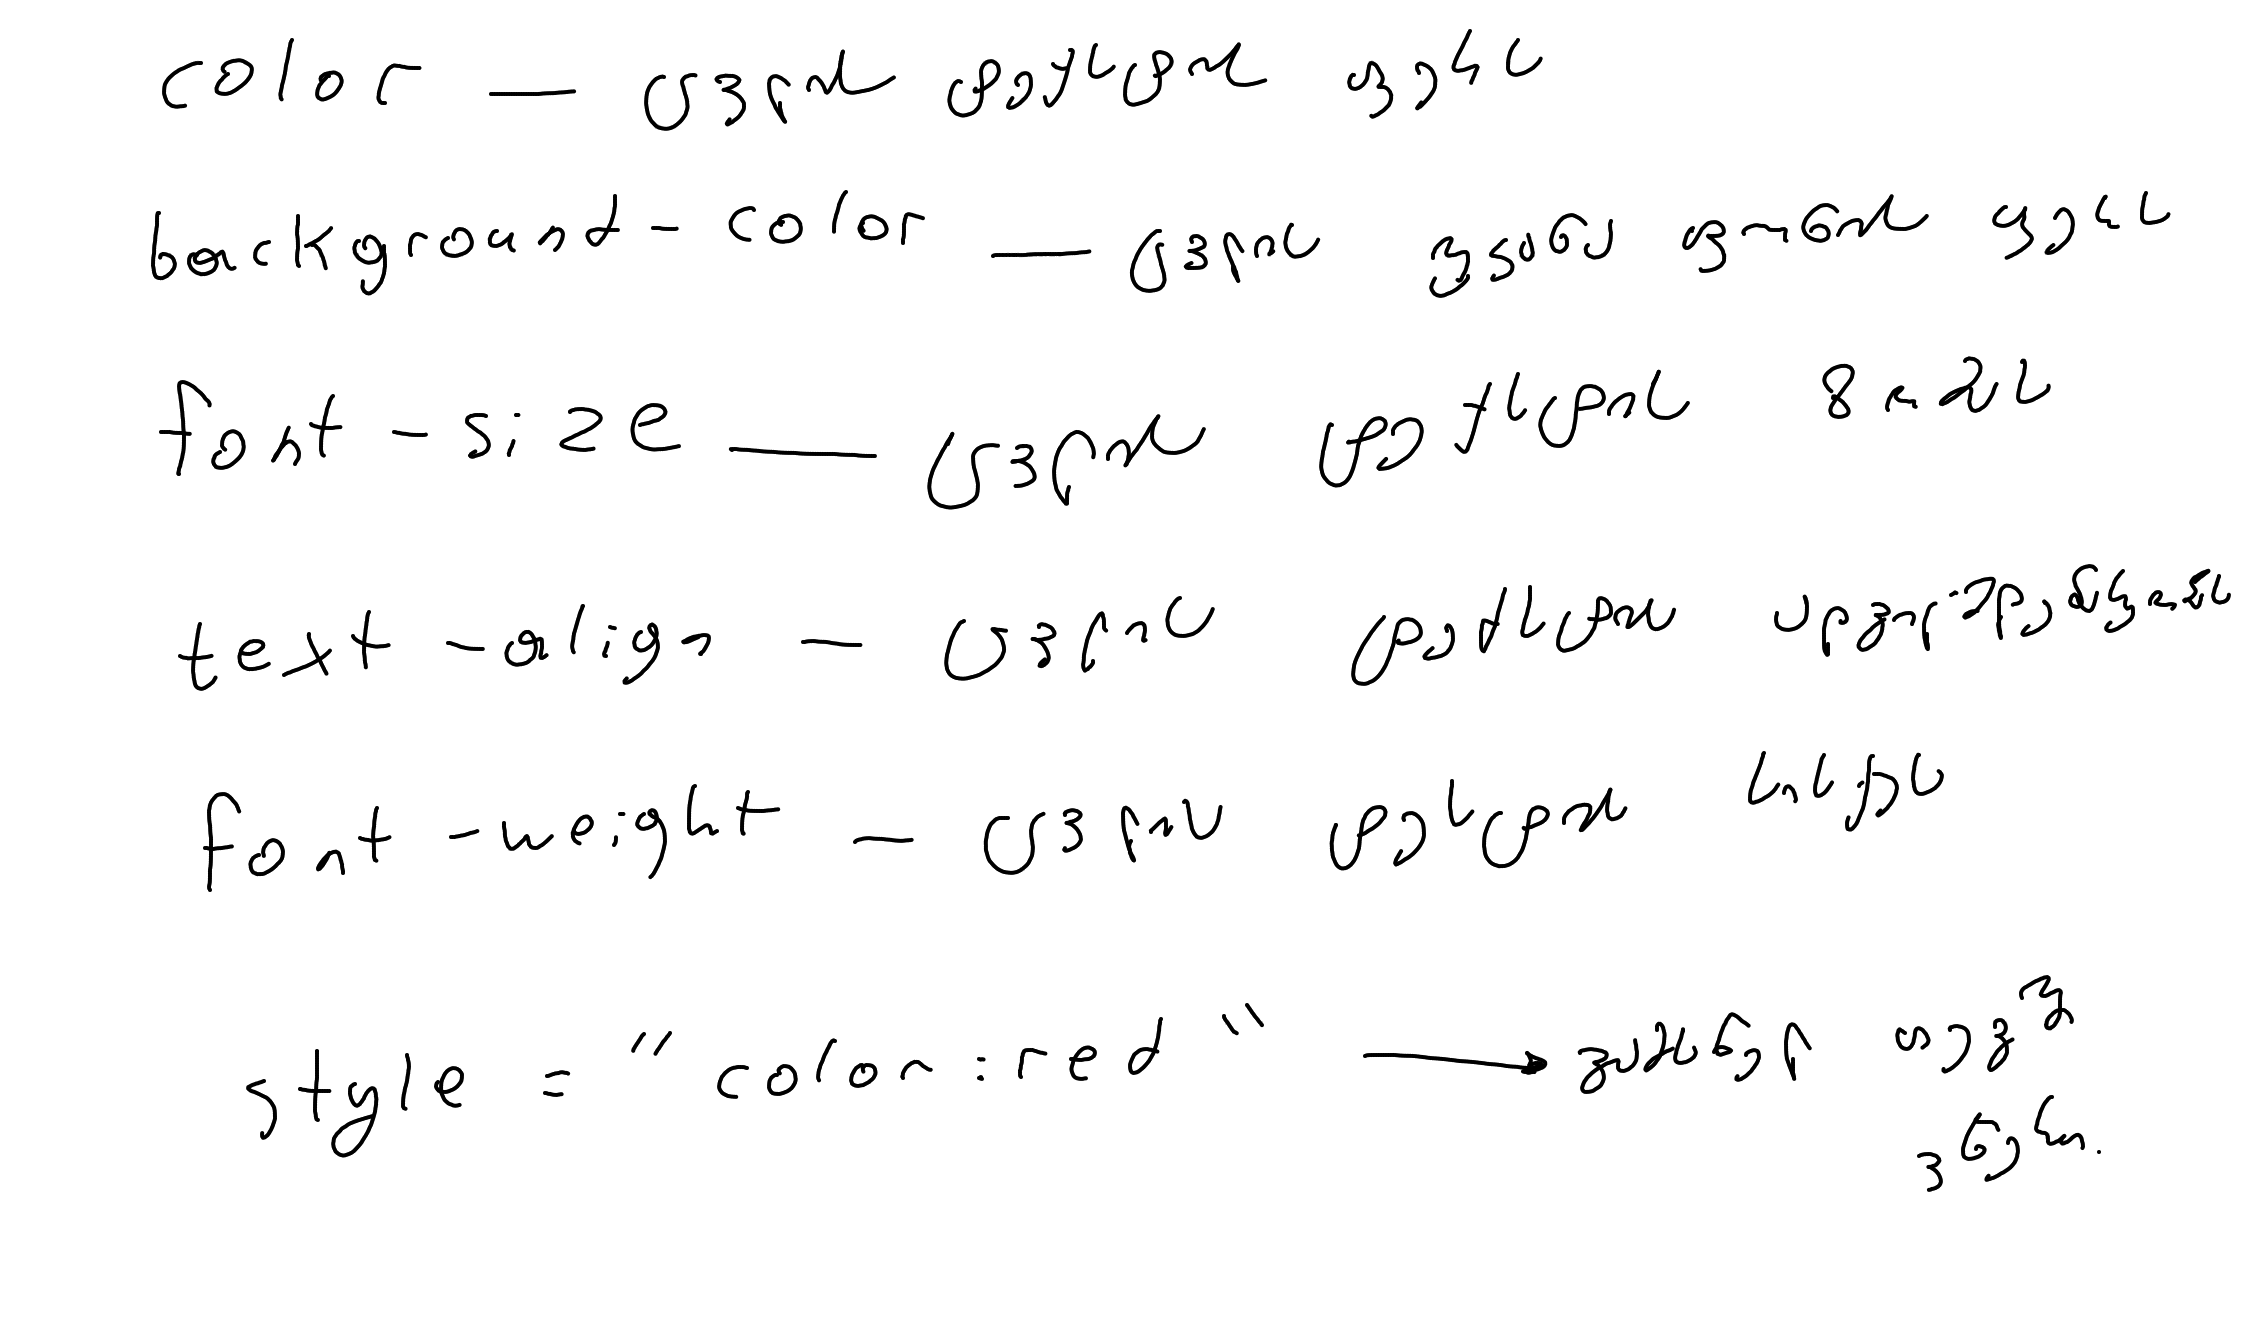 color — ცვლის ტექსტის ფერს
background-color — ცვლის უკანა ფონის ფერს
font-size — ცვლის ტექსტის ზომას
text-align — ცვლის ტექსტის ადგილმდებარეობას
font-weight — ცვლის ტესტის სისქეს
style = "color:red" → გამხსნელ თეგში
ვწერთ.